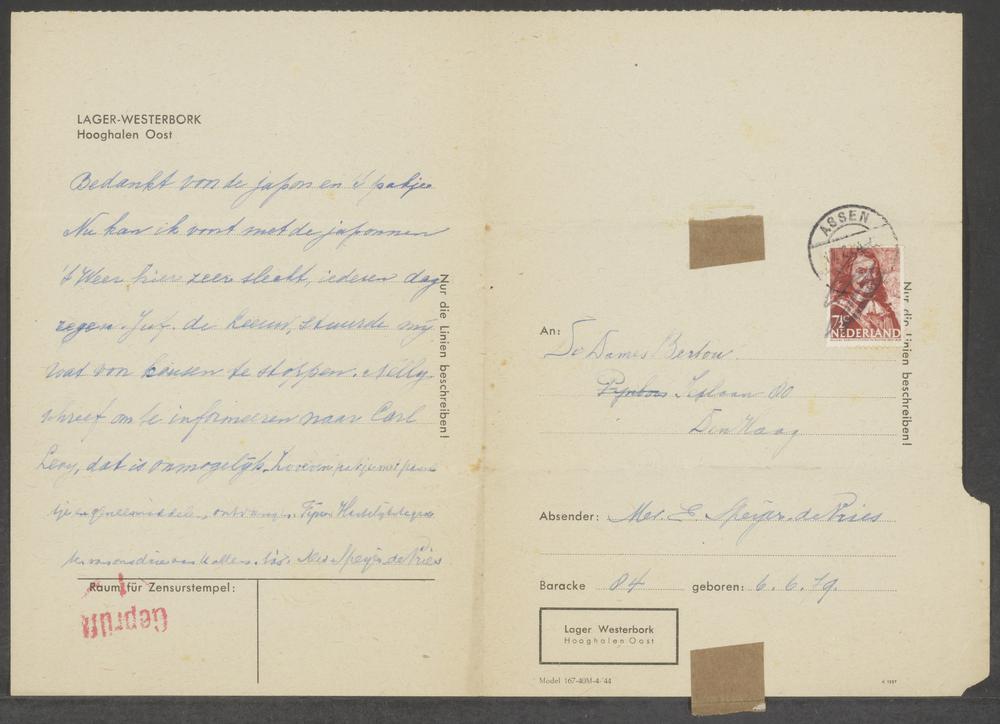 LAGER-WESTERBORK
Hooghalen Oost
Bedankt voor de japon en 't pakje
Nu kan ik voort met de japonnen
't Weer hier zeer slecht, iederen dag
regen. Juf. de Leeuw, stuurde mij
wat von kousen te stoppen. Nelly
schreef om te informeeren naar Carl
Levy, dat is onmogelijk. pakje met
ontvangen. Hartelijk
van Mev. Speijer-de Vries
Raum für Zensurstempel:
Geprüft
1
Nur die Linien beschreiben!
ASSEN
7½
NEDERLAND
Nur die Linien beschreiben!
An: De Dames Berton
laan 80
Den Haag
Absender: Mev. E. Speijer-de Vries
Baracke 84 geboren: 6.6.79.
Lager Westerbork
Hooghalen Oost
Model 167-40M-4-'44